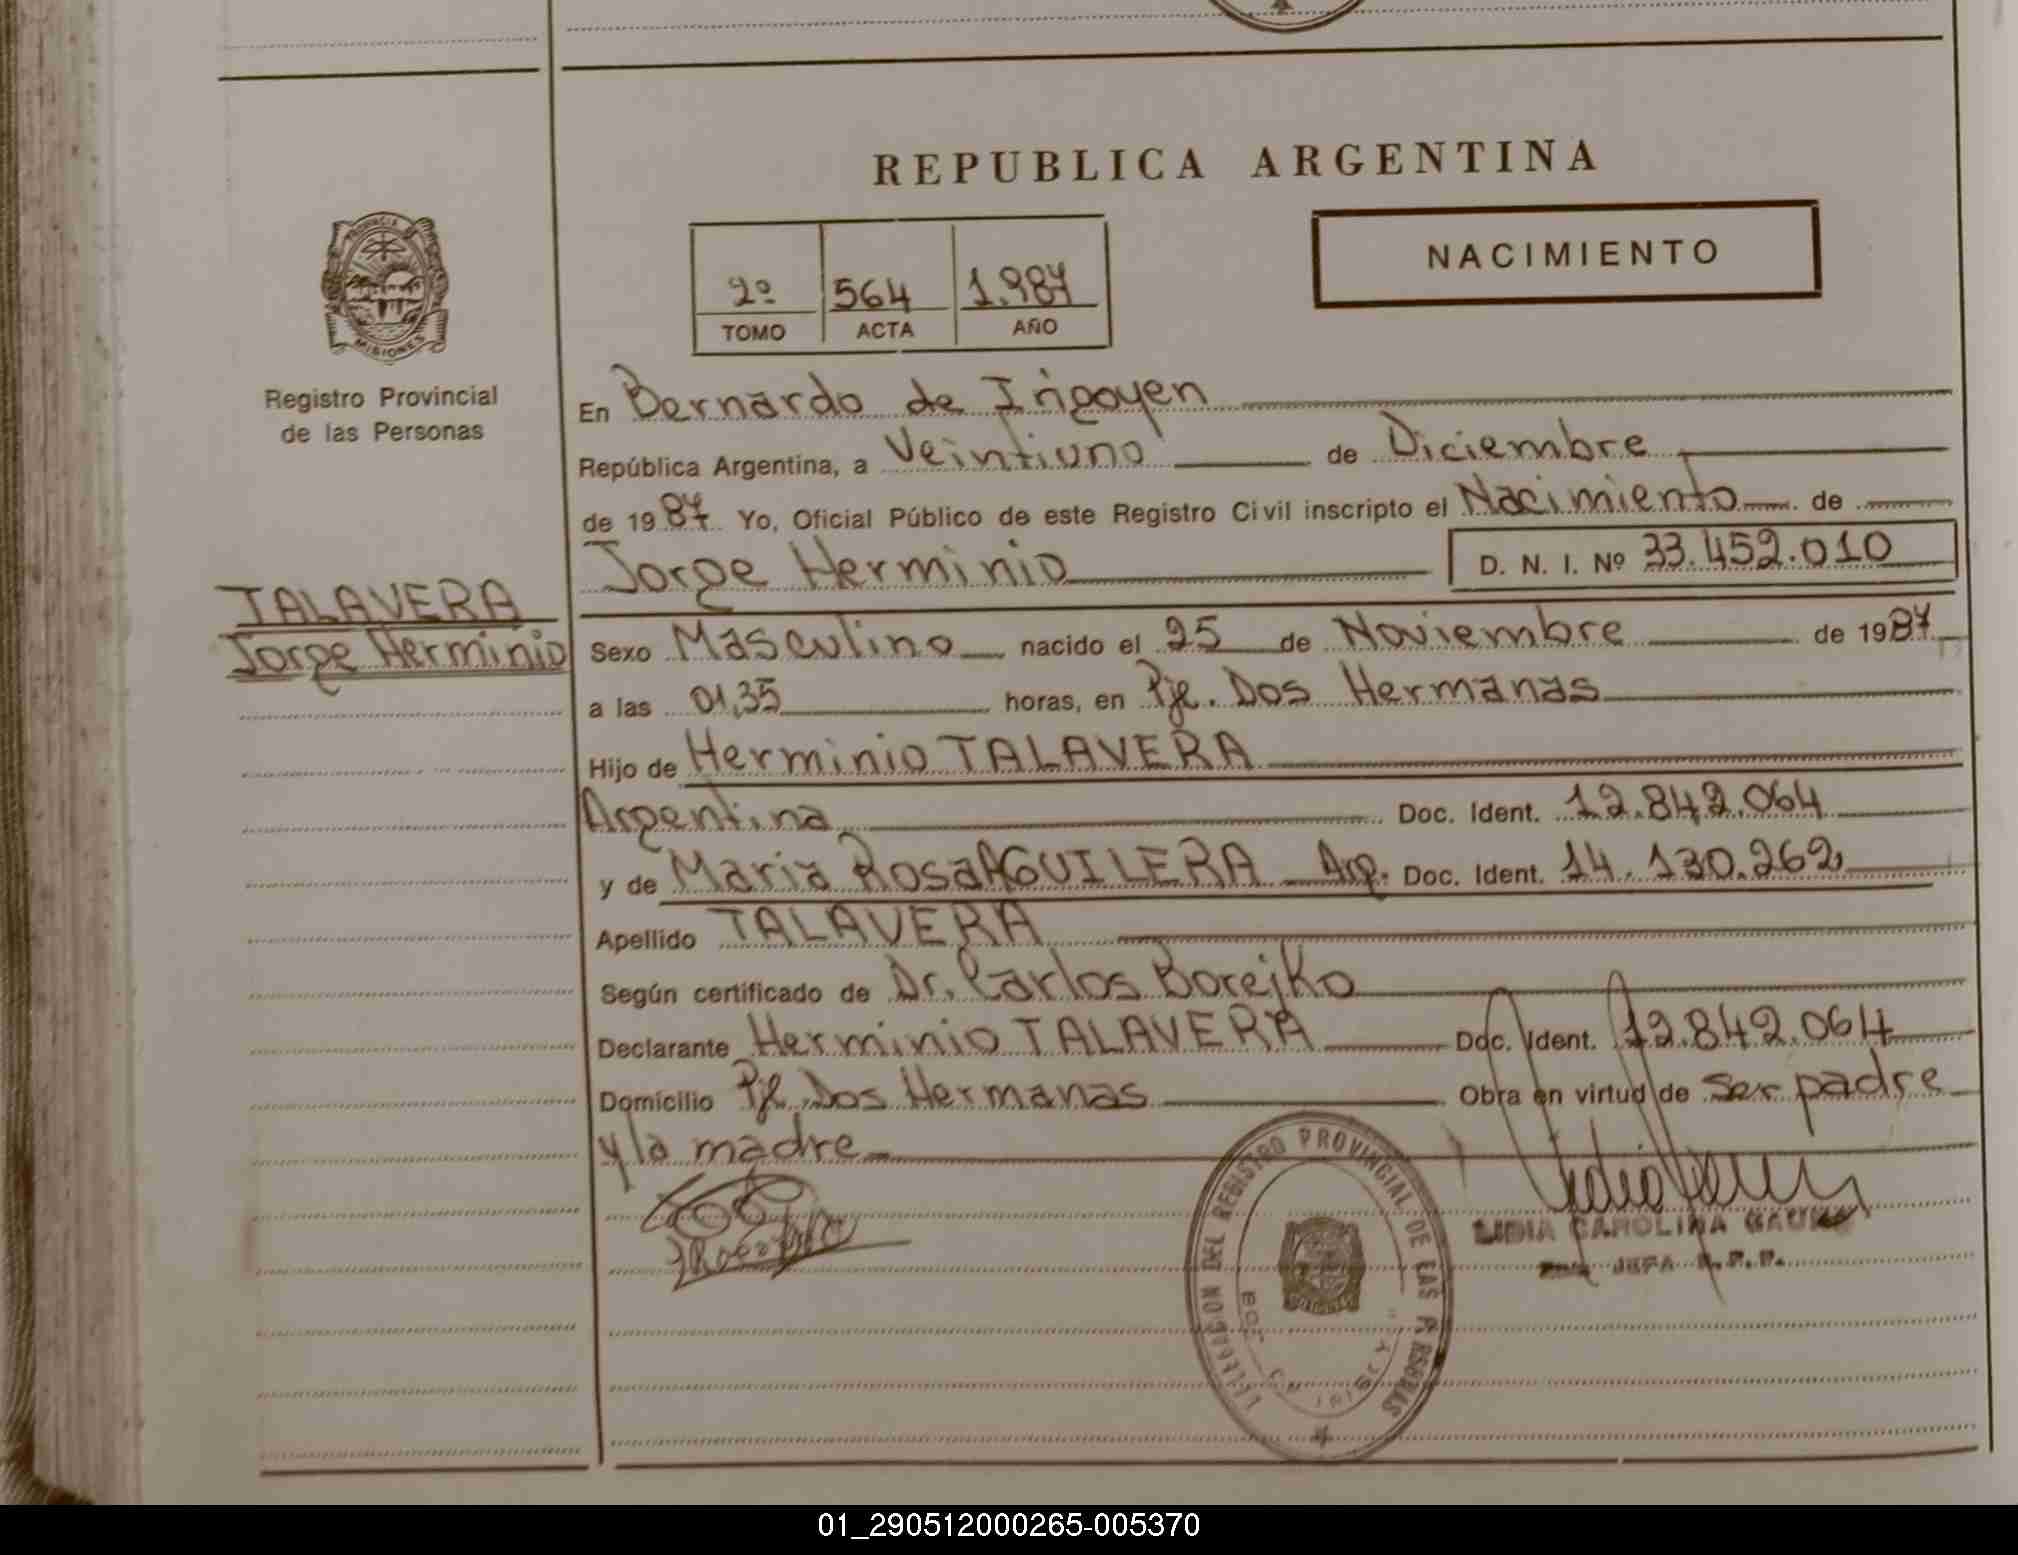 REPUBLICA ARGENTINA
NACIMIENTO
2º 564 1.987
TOMO ACTA AÑO
PROVINCIA DE
MISIONES
Registro Provincial
de las Personas
En Bernardo de Irigoyen
República Argentina, a Veintiuno de Diciembre
de 1987 Yo, Oficial Público de este Registro Civil inscripto el Nacimiento de
Jorge Herminio D. N. I. Nº 33.452.010
TALAVERA
Jorge Herminio
Sexo Masculino nacido el 25 de Noviembre de 1987
a las 01,35 horas, en Pje. Dos Hermanas
Hijo de Herminio TALAVERA
Argentina Doc. Ident. 12.842.064
y de Maria Rosa AGUILERA Arg. Doc. Ident. 14.130.262
Apellido TALAVERA
Según certificado de Dr. Carlos Borejko
Declarante Herminio TALAVERA Doc. Ident. 12.842.064
Domicilio Pje. Dos Hermanas Obra en virtud de ser padre
y la madre
DEL REGISTRO PROVINCIAL DE LAS PERSONAS
LIDIA CAROLINA
JEFA R.P.P.
01_290512000265-005370